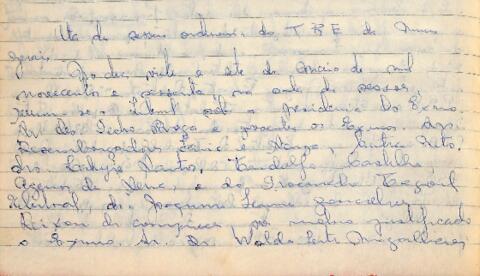 Ata da sessão ordinária do TRE de Minas
Gerais
Aos dez, vinte e sete de maio de mil
novecentos e sessenta, na sala de sessões,
reuniu-se o Tribunal sob a presidência do Exmo.
Sr. des. Pedro Braga e presentes os Exmos. Srs.
Desembargadores e Souza, Neto,
drs. Santos, Castilho,
de Sena, e do Procurador Regional
Eleitoral, dr. Joaquim Gonçalves
Deixou de comparecer por motivo justificado
o Exmo. Sr. Dr. Waldir Leite Magalhães